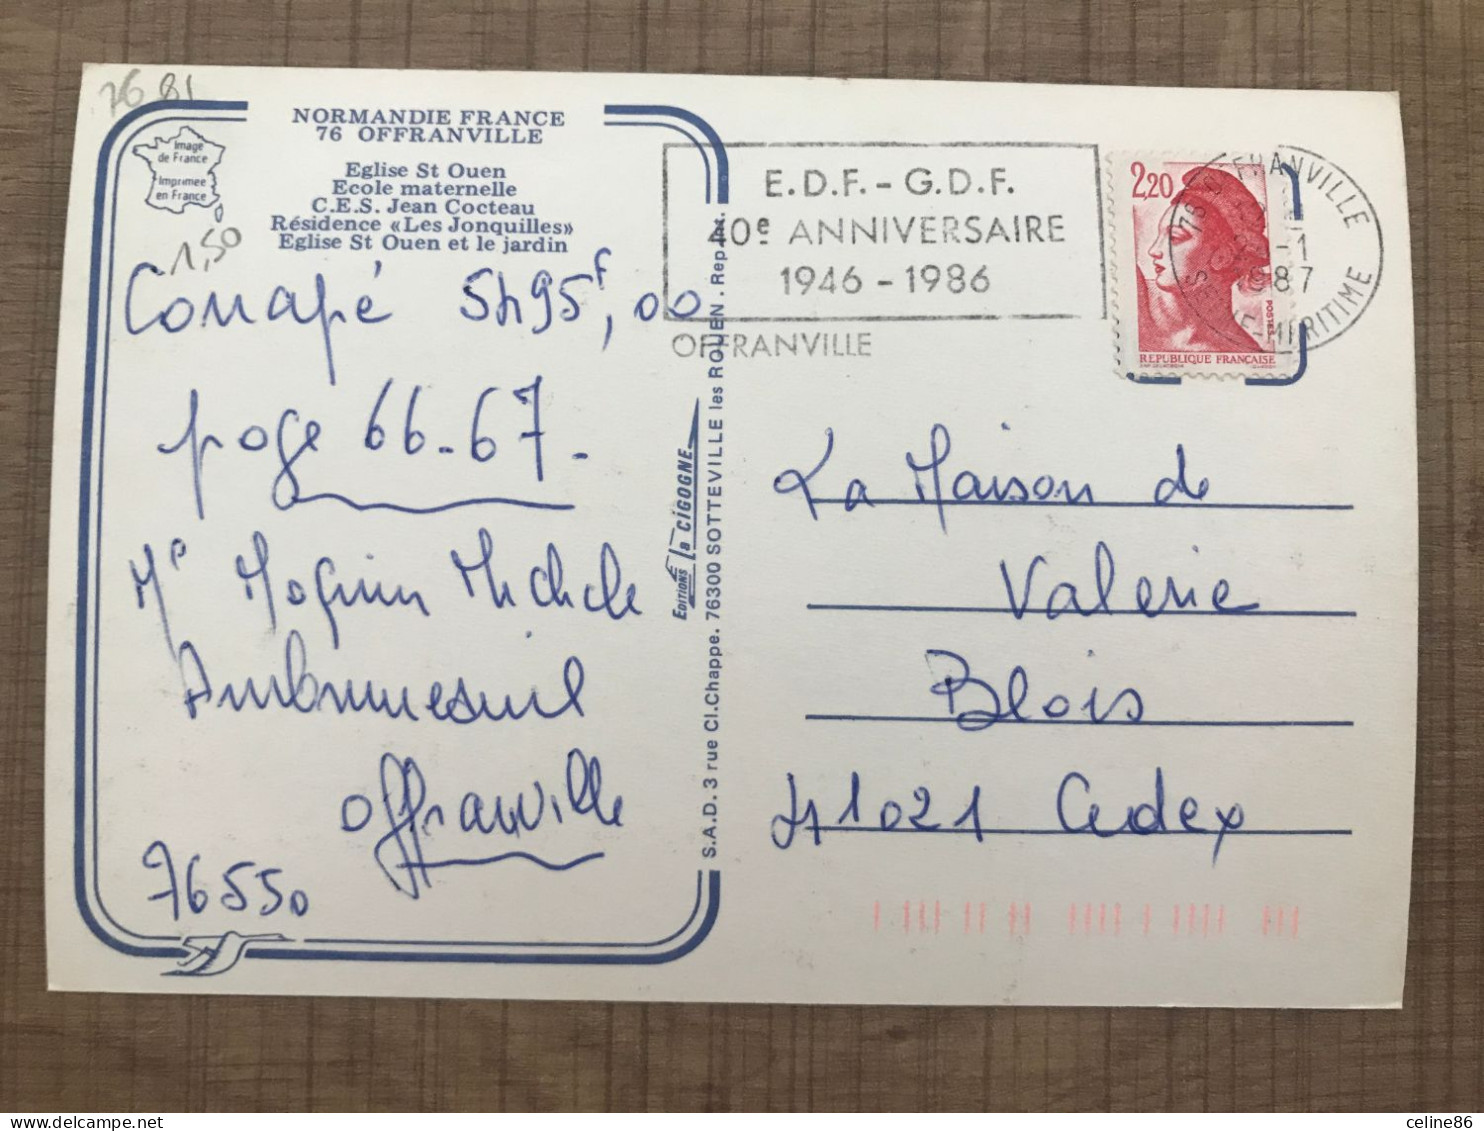 76 81
NORMANDIE FRANCE
76 OFFRANVILLE
Image
de France
Imprimée
en France
Eglise St Ouen
Ecole maternelle
C.E.S. Jean Cocteau
Résidence «Les Jonquilles»
Eglise St Ouen et le jardin
1,50
Canapé 5495F,00
page 66-67-
Michele
Offranville
76550
Editions La CIGOGNE
S.A.D. 3 rue Cl.Chappe. 76300 SOTTEVILLE les ROUEN. Rep. int.
E.D.F. - G.D.F.
40e ANNIVERSAIRE
1946 - 1986
OFFRANVILLE
2,20
POSTES
REPUBLIQUE FRANÇAISE
76 OFFRANVILLE
-1
1987
SEINE-MARITIME
La Maison de
Valerie
Blois
41021 Cedex
celine86